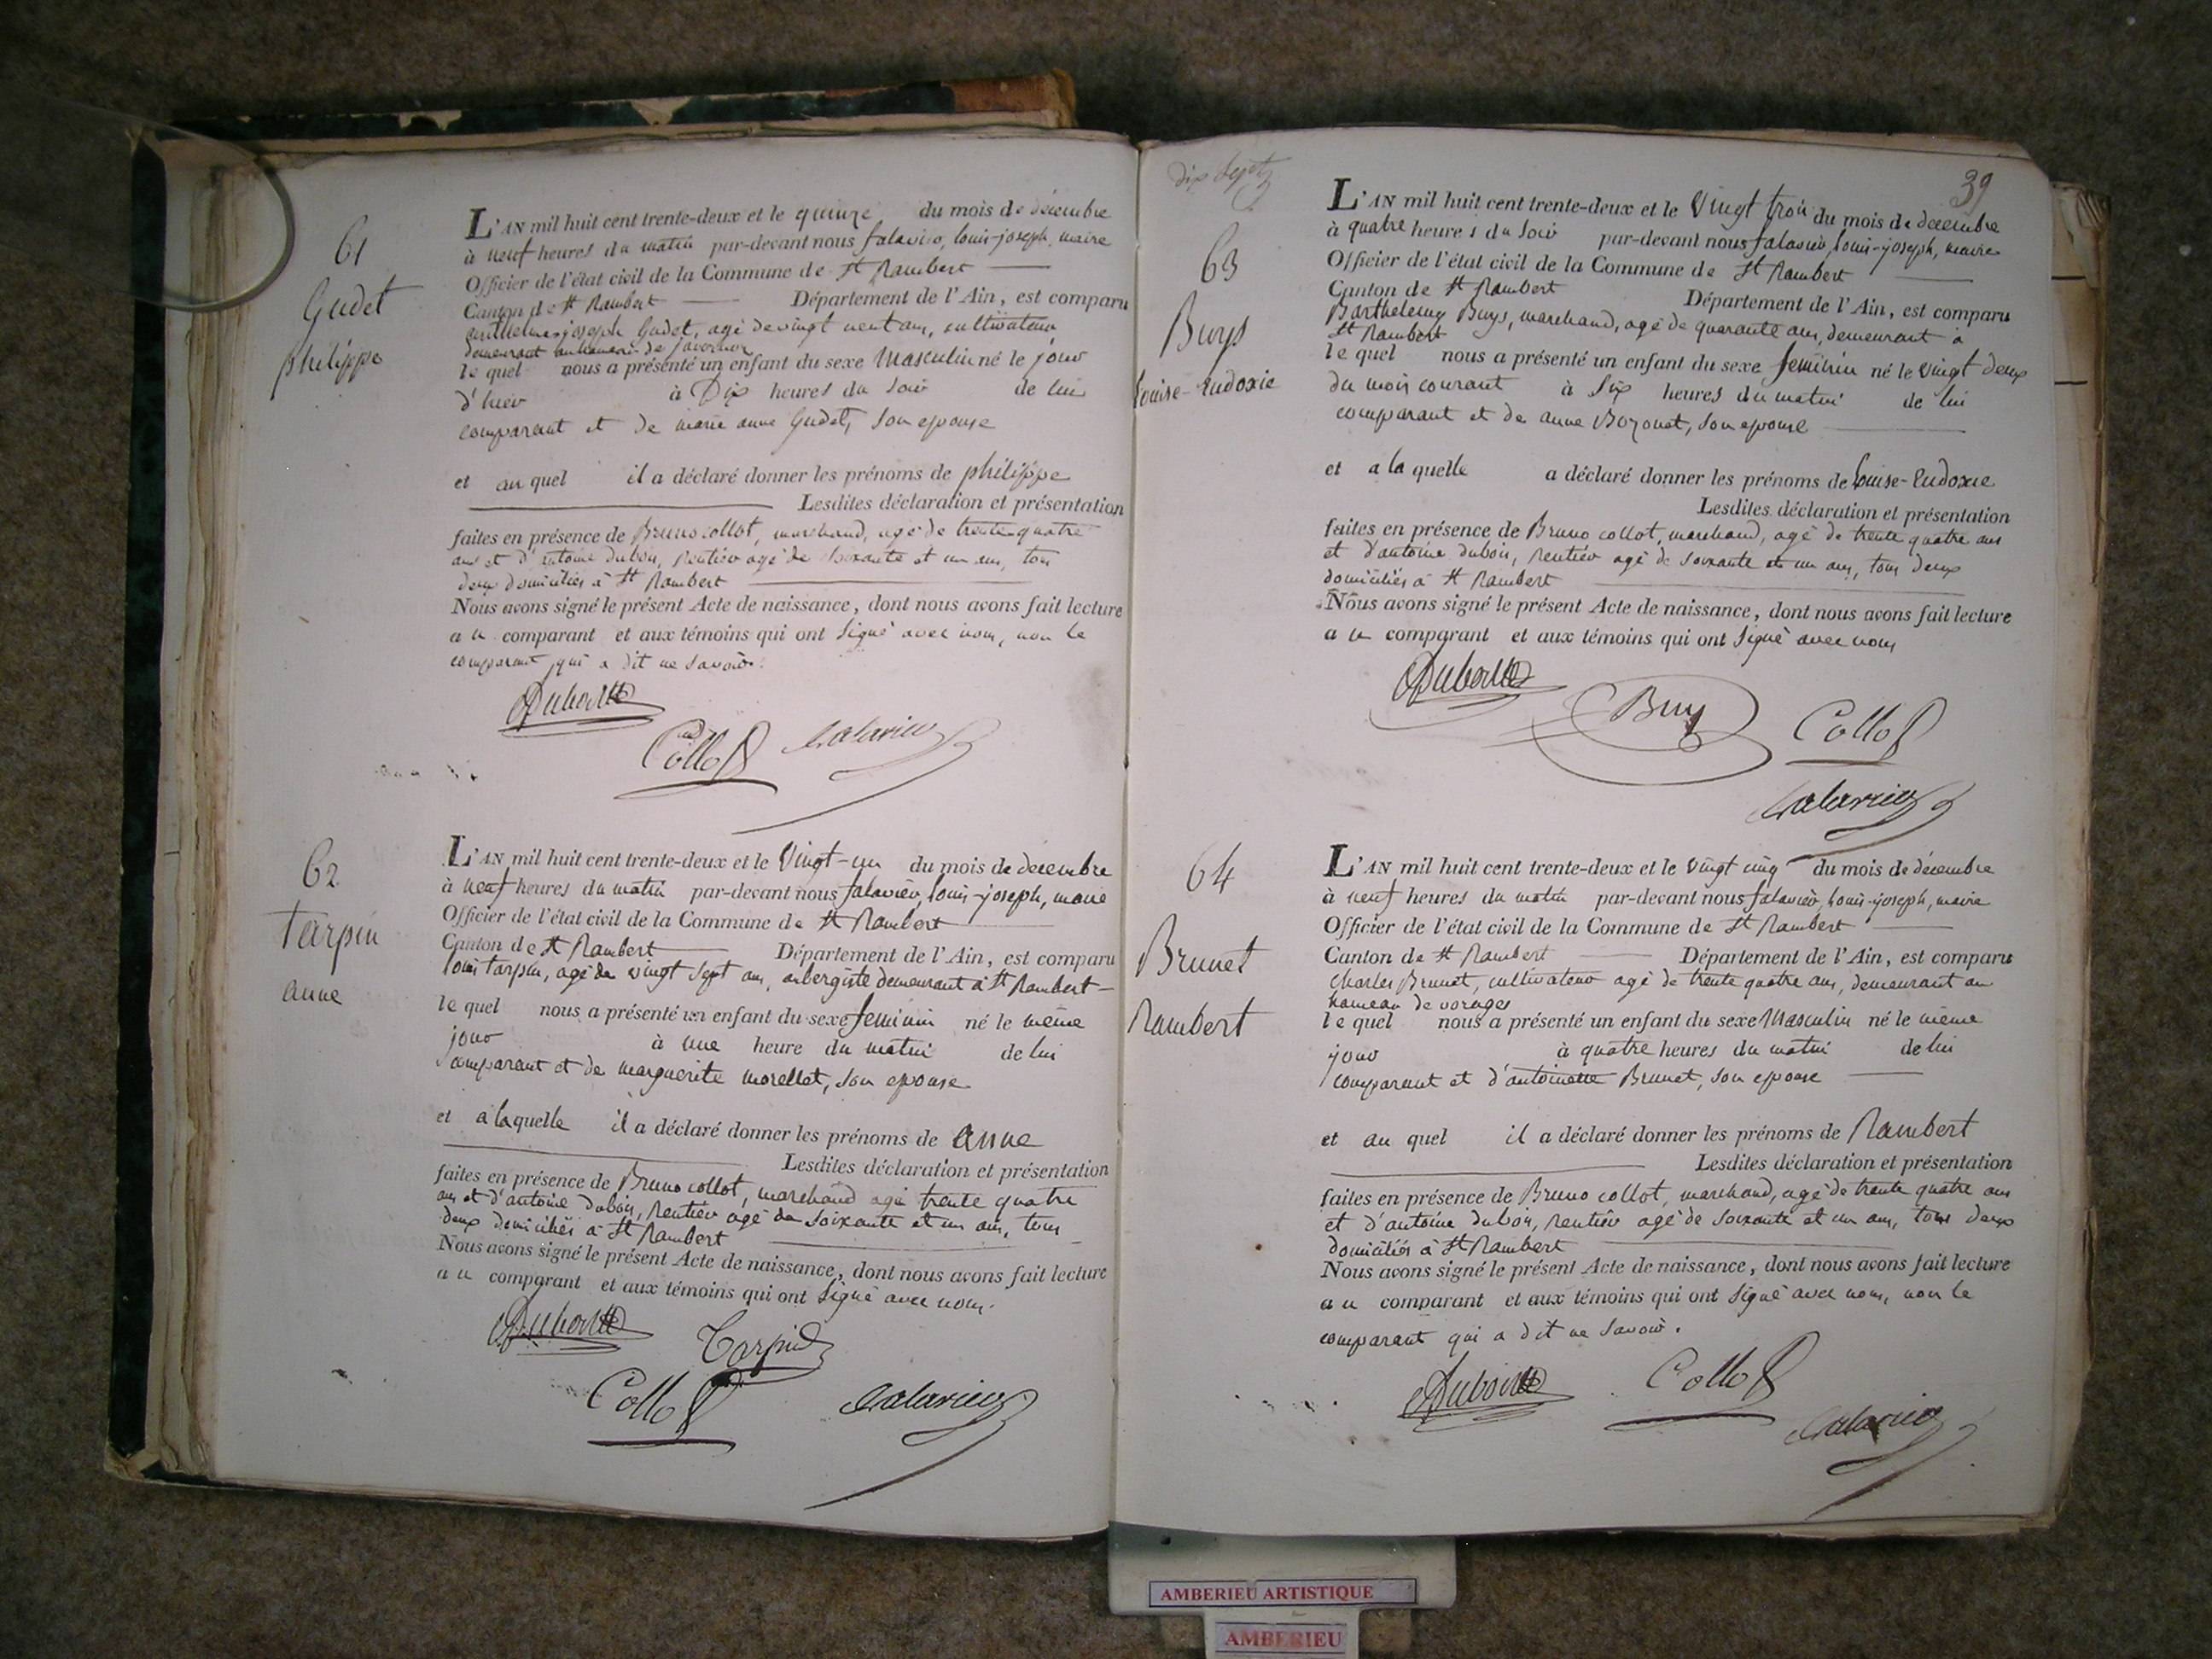 61
Gudet
philippe
L'AN mil huit cent trente-deux et le quinze du mois de décembre
à neuf heures du matin par-devant nous falavier, louis-joseph, maire
Officier de l'état civil de la Commune de St Rambert
Canton de St Rambert Département de l'Ain, est comparu
anthelme-joseph Gudet, agé de vingt neuf ans, cultivateur
demeurant au hameau de javornoz
le quel nous a présenté un enfant du sexe Masculin né le jour
d'hier à Dix heures du soir de lui
comparant et de marie anne Gudet, son epouse
et au quel il a déclaré donner les prénoms de philippe
Lesdites déclaration et présentation
faites en présence de Bruno collot, marchand, agé de trente quatre
ans et d'antoine dubois, rentier agé de soixante et un ans, tous
deux domiciliés à St Rambert
Nous avons signé le présent Acte de naissance, dont nous avons fait lecture
au comparant et aux témoins qui ont signé avec nous, non le
comparant qui a dit ne savoir.
Dubois
Collot
falavier
62
tarpin
anne
L'AN mil huit cent trente-deux et le Vingt-un du mois de décembre
à neuf heures du matin par-devant nous falavier, louis-joseph, maire
Officier de l'état civil de la Commune de St Rambert
Canton de St Rambert Département de l'Ain, est comparu
louis tarpin, agé de vingt sept ans, aubergiste demeurant à St Rambert
le quel nous a présenté un enfant du sexe feminin né le même
jour à une heure du matin de lui
comparant et de marguerite morellet, son epouse
et à laquelle il a déclaré donner les prénoms de anne
Lesdites déclaration et présentation
faites en présence de Bruno collot, marchand agé trente quatre
ans et d'antoine dubois, rentier agé de soixante et un ans, tous
deux domiciliés à St Rambert
Nous avons signé le présent Acte de naissance, dont nous avons fait lecture
au comparant et aux témoins qui ont signé avec nous.
Dubois
Tarpin
Collot
falavier
dix sept
39
63
Buys
louise-Eudoxie
L'AN mil huit cent trente-deux et le Vingt trois du mois de decembre
à quatre heures du soir par-devant nous falavier, louis-joseph, maire
Officier de l'état civil de la Commune de St Rambert
Canton de St Rambert Département de l'Ain, est comparu
Barthelemy Buys, marchand, agé de quarante ans, demeurant à
St Rambert
le quel nous a présenté un enfant du sexe feminin né le vingt deux
du mois courant à Six heures du matin de lui
comparant et de anne Bozonet, son epouse
et a la quelle a déclaré donner les prénoms de louise-Eudoxie
Lesdites déclaration et présentation
faites en présence de Bruno collot, marchand, agé de trente quatre ans
et d'antoine dubois, rentier agé de soixante et un ans, tous deux
domiciliés à St Rambert
Nous avons signé le présent Acte de naissance, dont nous avons fait lecture
au comparant et aux témoins qui ont signé avec nous
Dubois
Buy
Collot
falavier
64
Brunet
Rambert
L'AN mil huit cent trente-deux et le vingt cinq du mois de décembre
à neuf heures du matin par-devant nous falavier, louis-joseph, maire
Officier de l'état civil de la Commune de St Rambert
Canton de St Rambert Département de l'Ain, est comparu
Charles Brunet, cultivateur agé de trente quatre ans, demeurant au
hameau de vorages
le quel nous a présenté un enfant du sexe Masculin né le même
jour à quatre heures du matin de lui
comparant et d'antoinette Brunet, son epouse
et au quel il a déclaré donner les prénoms de Rambert
Lesdites déclaration et présentation
faites en présence de Bruno collot, marchand, agé de trente quatre ans
et d'antoine dubois, rentier agé de soixante et un ans, tous deux
domiciliés à St Rambert
Nous avons signé le présent Acte de naissance, dont nous avons fait lecture
au comparant et aux témoins qui ont signé avec nous, non le
comparant qui a dit ne savoir.
Dubois
Collot
falavier
AMBERIEU ARTISTIQUE
AMBERIEU